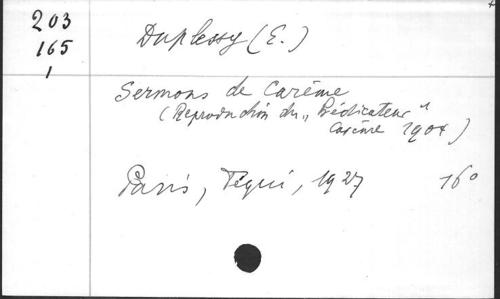 203
165
1
Duplessy (E.)
Sermons de Carême
(Reproduction du „Prédicateur"
Carême 1904)
Paris, Téqui, 1927 16°